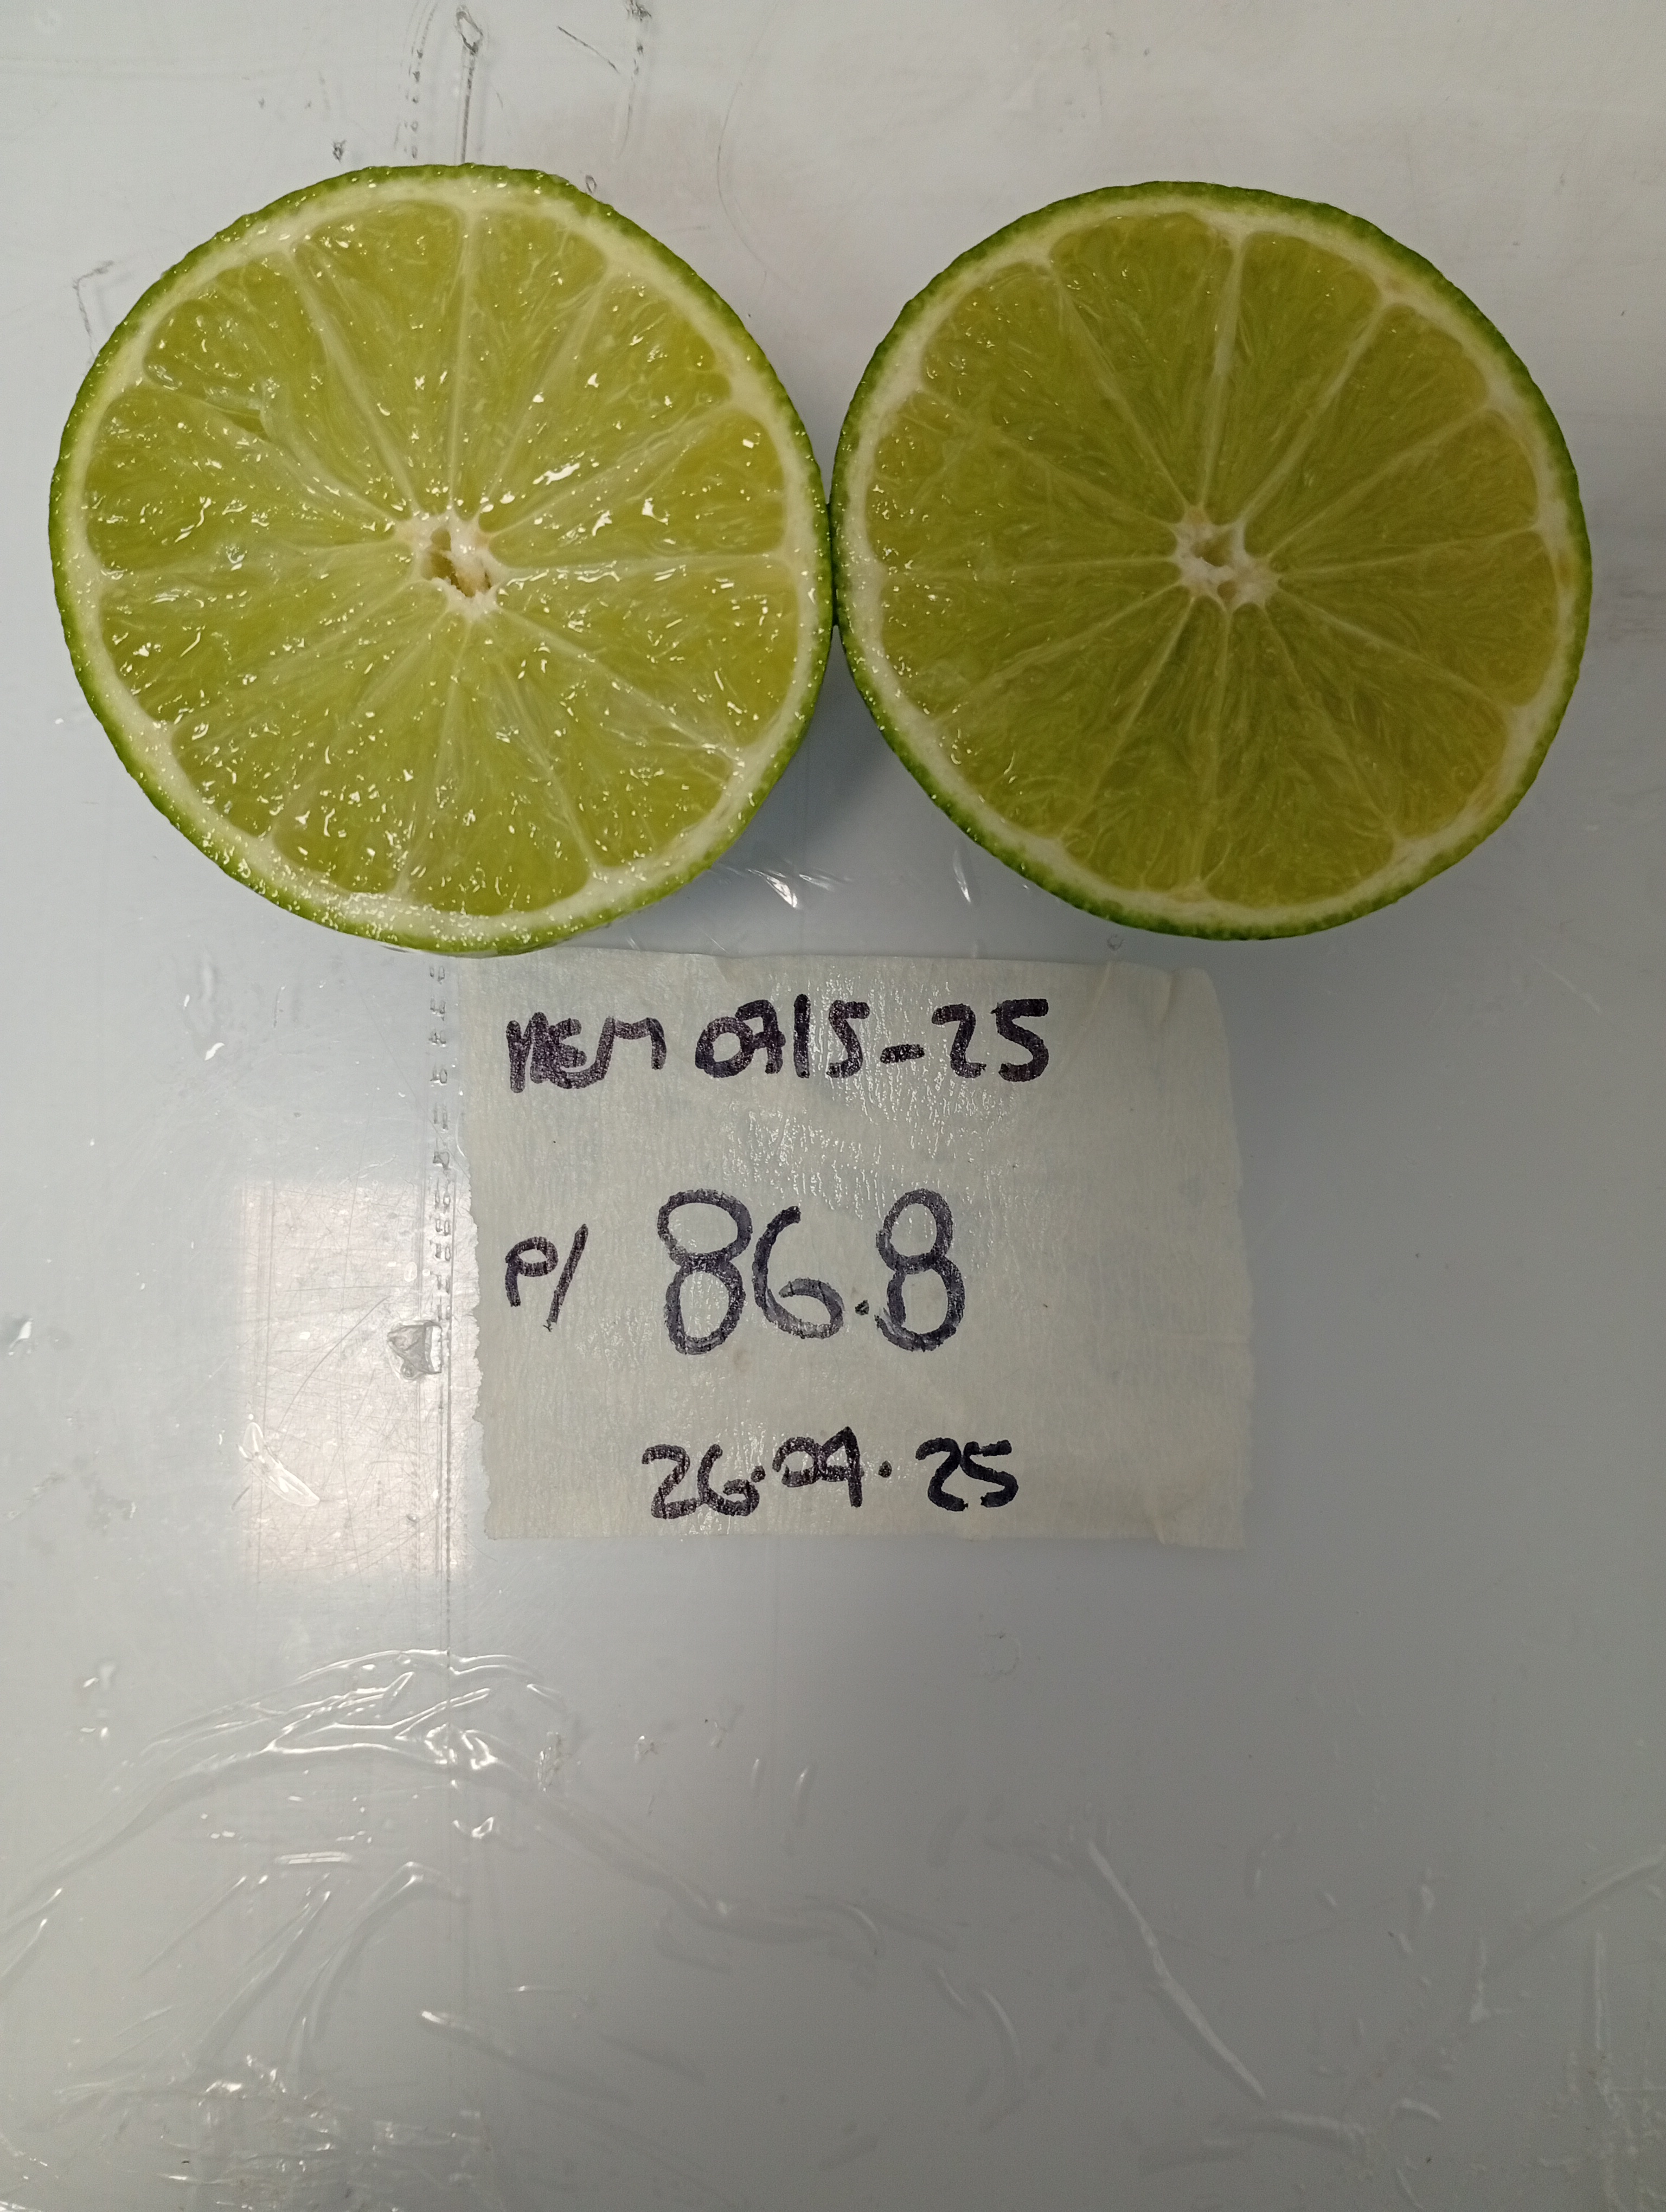 MEM 0715-25
P/ 86.8
26.09.25